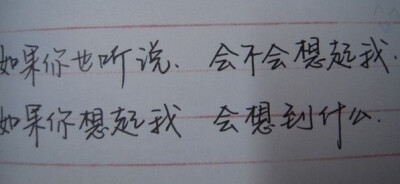 如果你也听说、会不会想起我.
如果你想起我 会想到什么.